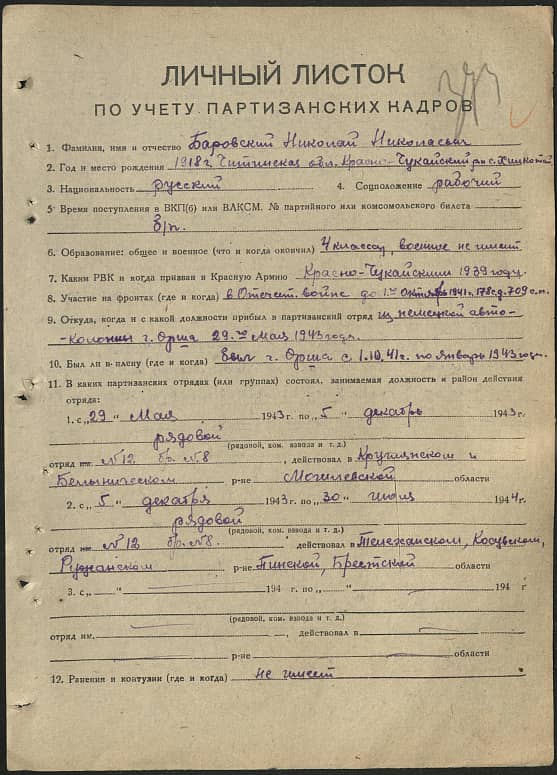 ЛИЧНЫЙ ЛИСТОК
ПО УЧЕТУ ПАРТИЗАНСКИХ КАДРОВ
1. Фамилия, имя и отчество Баровский Николай Николаевич
2. Год и место рождения 1918 г. Читинская обл. Красно-Чукайский р-н с.
3. Национальность русский 4. Соцположение рабочий
5 Время поступления в ВКП(б) или ВЛКСМ. № партийного или комсомольского билета
б/п.
6. Образование: общее и военное (что и когда окончил) 4 класса, военное не имеет
7. Каким РВК и когда призван в Красную Армию Красно-Чукайским 1939 году.
8. Участие на фронтах (где и когда) в Отечест. войне до 1го Октября 1941 г. 178 с.д. 709 с.п.
9. Откуда, когда и с какой должности прибыл в партизанский отряд из немецкой авто-
-колоны г. Орша 29го Мая 1943 года.
10. Был ли в плену (где и когда) был г. Орша с 1.10.41 г. по январь 1943 года
11. В каких партизанских отрядах (или группах) состоял, занимаемая должность и район действия
отряда:
1. с „29“ Мая 1943 г. по „5“ декабрь 1943 г.
рядовой
(рядовой, ком. взвода и т. д.)
отряд им. №12 бр. №8, действовал в Круглянском и
Белыническом р-не Могилевской области
2. с „5“ декабря 1943 г. по „30“ июля 1944 г.
рядовой
(рядовой, ком. взвода и т. д.)
отряд им. №12 бр. №8. действовал в Телеханском, Косувском,
Ружанском р-не Пинской, Брестский области
3. с „ “ 194 г. по „ “ 194 г
(рядовой, ком. взвода и т. д.)
отряд им. , действовал в
р-не области
12. Ранения и контузии (где и когда) не имеет